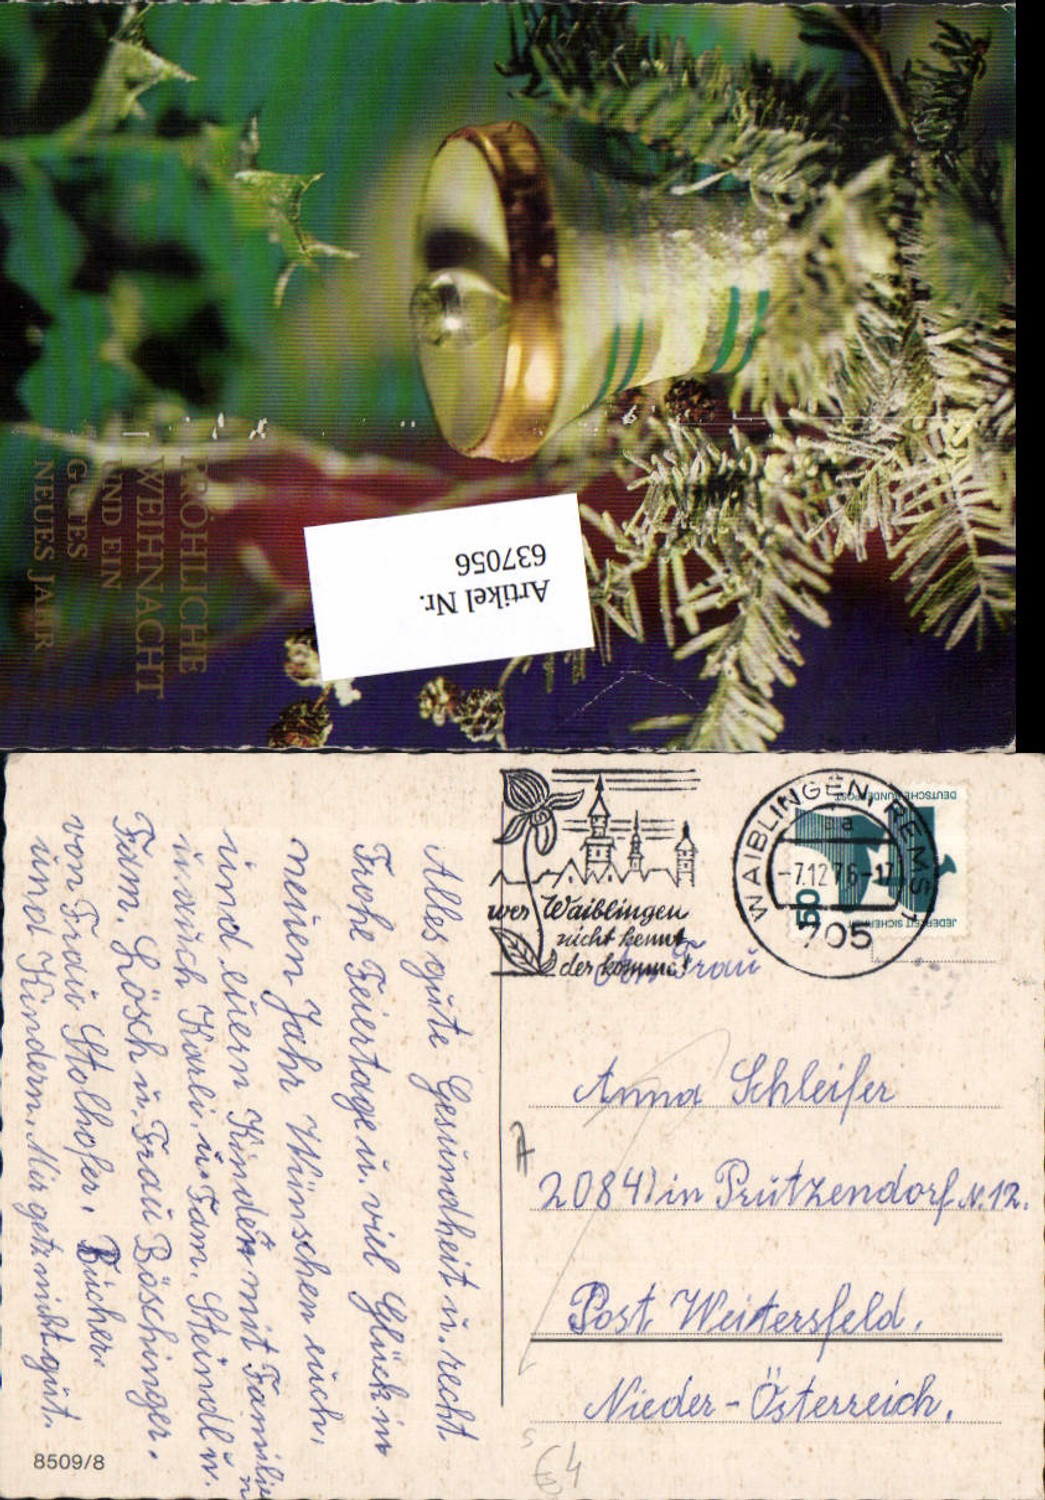 FRÖHLICHE
WEIHNACHT
UND EIN
GUTES
NEUES JAHR
Artikel Nr.
637056
wer Waiblingen
nicht kennt
der komme!
WAIBLINGEN, REMS 1
-7.12.76-17
705
DEUTSCHE BUNDESPOST
50
JEDERZEIT SICHERHEIT
Alles gute Gesundheit u. recht
Frohe Feiertage u. viel Glück in
neuen Jahr Wünschen euch,
und euern Kindern mit Familien
u. auch Karli, u. Fam. Steindl u.
Fam. Lösch u. Frau Böschinger.
von Frau Stolhofer, Bücher.
und Kindern. Mir geht nicht gut.
8509/8
An Frau
Anna Schleifer
2084) in Prutzendorf N. 12.
Post Weitersfeld,
Nieder-Österreich.